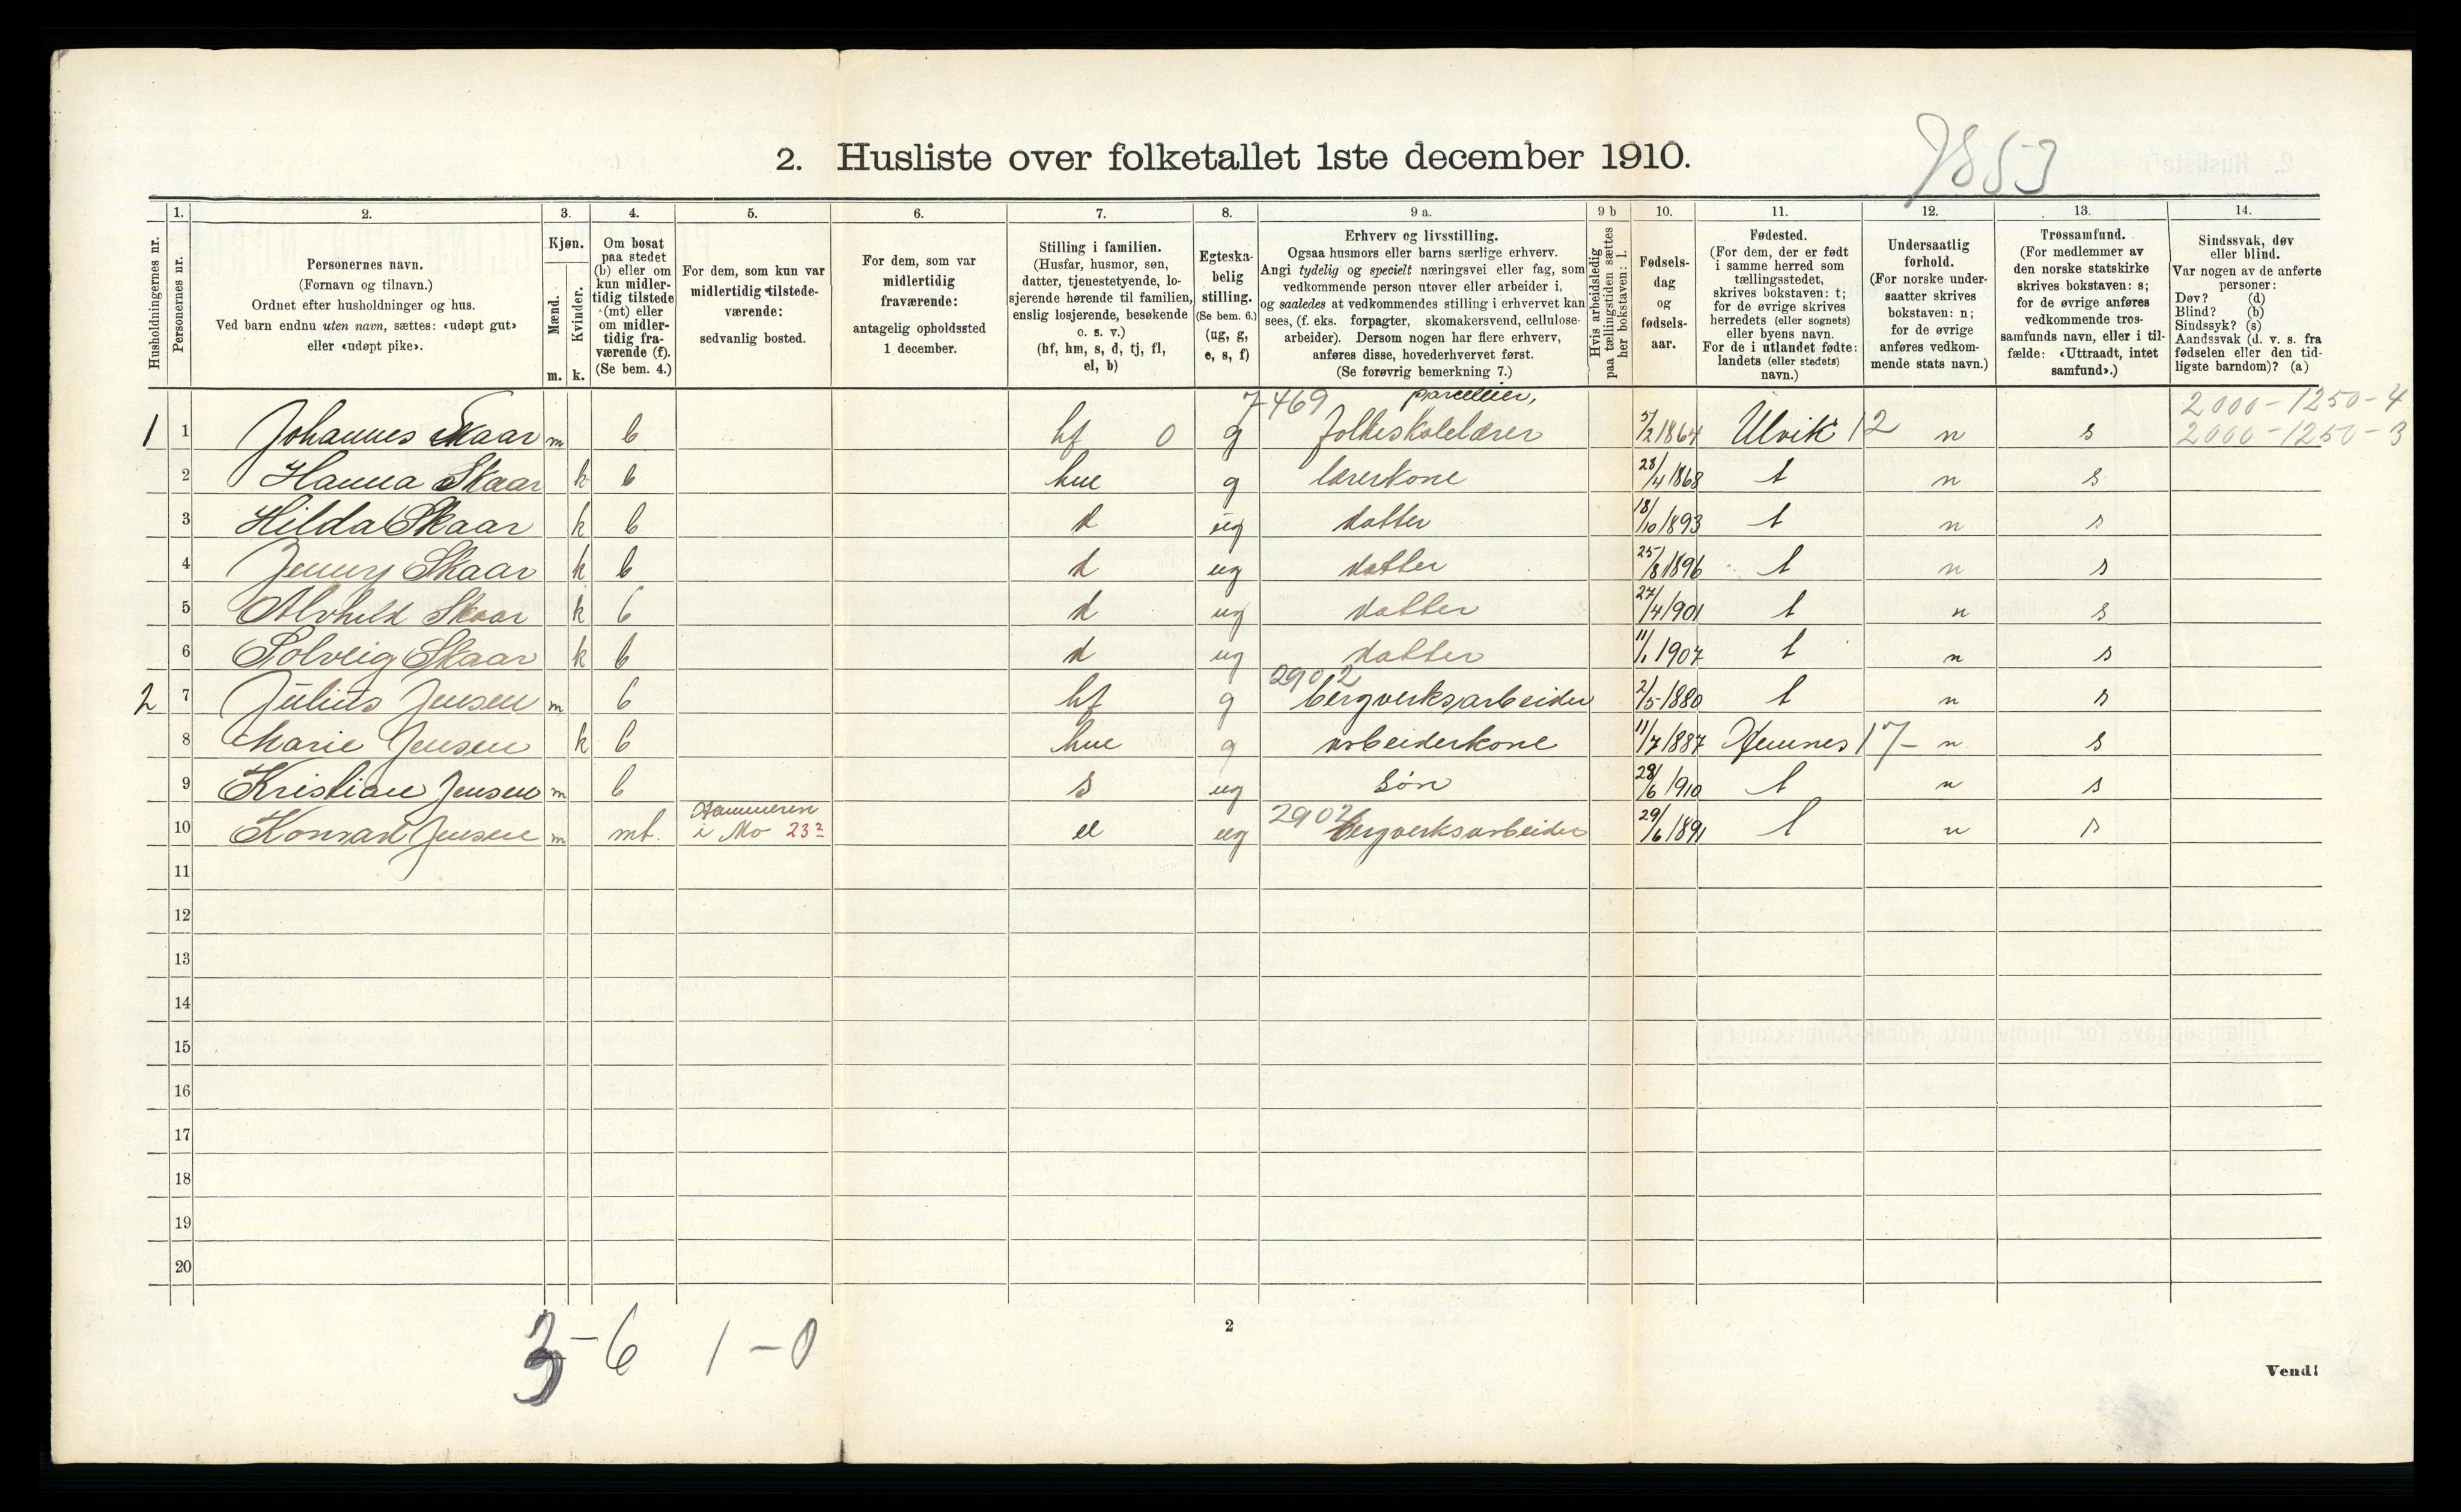 7853
2. Husliste over folketallet 1ste december 1910.
Husholdningernes nr.
1.
Personernes nr.
2.
Personernes navn.
(Fornavn og tilnavn.)
Ordnet efter husholdninger og hus.
Ved barn endnu uten navn, sættes: «udøpt gut»
eller «udøpt pike».
3.
Kjøn.
Mænd.
Kvinder.
m. k.
4.
Om bosat
paa stedet
(b) eller om
kun midler-
tidig tilstede
(mt) eller
om midler-
tidig fra-
værende (f).
(Se bem. 4.)
5.
For dem, som kun var
midlertidig tilstede-
værende:
sedvanlig bosted.
6.
For dem, som var
midlertidig
fraværende:
antagelig opholdssted
1 december.
7.
Stilling i familien.
(Husfar, husmor, søn,
datter, tjenestetyende, lo-
sjerende hørende til familien,
enslig losjerende, besøkende
o. s. v.)
(hf, hm, s, d, tj, fl,
el, b)
8.
Egteska-
belig
stilling.
(Se bem. 6.)
(ug, g,
e, s, f)
9 a.
Erhverv og livsstilling.
Ogsaa husmors eller barns særlige erhverv.
Angi tydelig og specielt næringsvei eller fag, som
vedkommende person utøver eller arbeider i,
og saaledes at vedkommendes stilling i erhvervet kan
sees, (f. eks. forpagter, skomakersvend, cellulose-
arbeider). Dersom nogen har flere erhverv,
anføres disse, hovederhvervet først.
(Se forøvrig bemerkning 7.)
9 b
Hvis arbeidsledig
paa tællingstiden sættes
her bokstaven: l.
10.
Fødsels-
dag
og
fødsels-
aar.
11.
Fødested.
(For dem, der er født
i samme herred som
tællingsstedet,
skrives bokstaven: t;
for de øvrige skrives
herredets (eller sognets)
eller byens navn.
For de i utlandet fødte:
landets (eller stedets)
navn.)
12.
Undersaatlig
forhold.
(For norske under-
saatter skrives
bokstaven: n;
for de øvrige
anføres vedkom-
mende stats navn.)
13.
Trossamfund.
(For medlemmer av
den norske statskirke
skrives bokstaven: s;
for de øvrige anføres
vedkommende tros-
samfunds navn, eller i til-
fælde: «Uttraadt, intet
samfund».)
14.
Sindssvak, døv
eller blind.
Var nogen av de anførte
personer:
Døv? (d)
Blind? (b)
Sindssyk? (s)
Aandssvak (d. v. s. fra
fødselen eller den tid-
ligste barndom)? (a)
7469 parcellier, 2000-1250-4
1 1 Johannes Skaar m b hf 0 g folkeskolelærer 5/2 1864 Ulvik 12 n s 2000-1250-3
2 Hanna Skaar k b hue g lærerkone 28/4 1868 t n s
3 Hilda Skaar k b d ug datter 18/10 1893 t n s
4 Jenny Skaar k b d ug datter 25/8 1896 t n s
5 Alvhild Skaar k b d ug datter 27/4 1901 t n s
6 Solveig Skaar k b d ug datter 11/1 1907 t n s
2902
2 7 Julius Jensen m b hf g bergverksarbeider 2/5 1880 t n s
8 Marie Jensen k b hue g arbeiderkone 11/7 1887 Hemnes 17- n s
9 Kristian Jensen m b s ug søn 28/6 1910 t n s
Hammeren 2902
10 Konrad Jensen m mt. i Mo 23² el ug bergverksarbeider 29/6 1891 t n s
11
12
13
14
15
16
17
18
19
20
3-6 1-0
2
Vend!